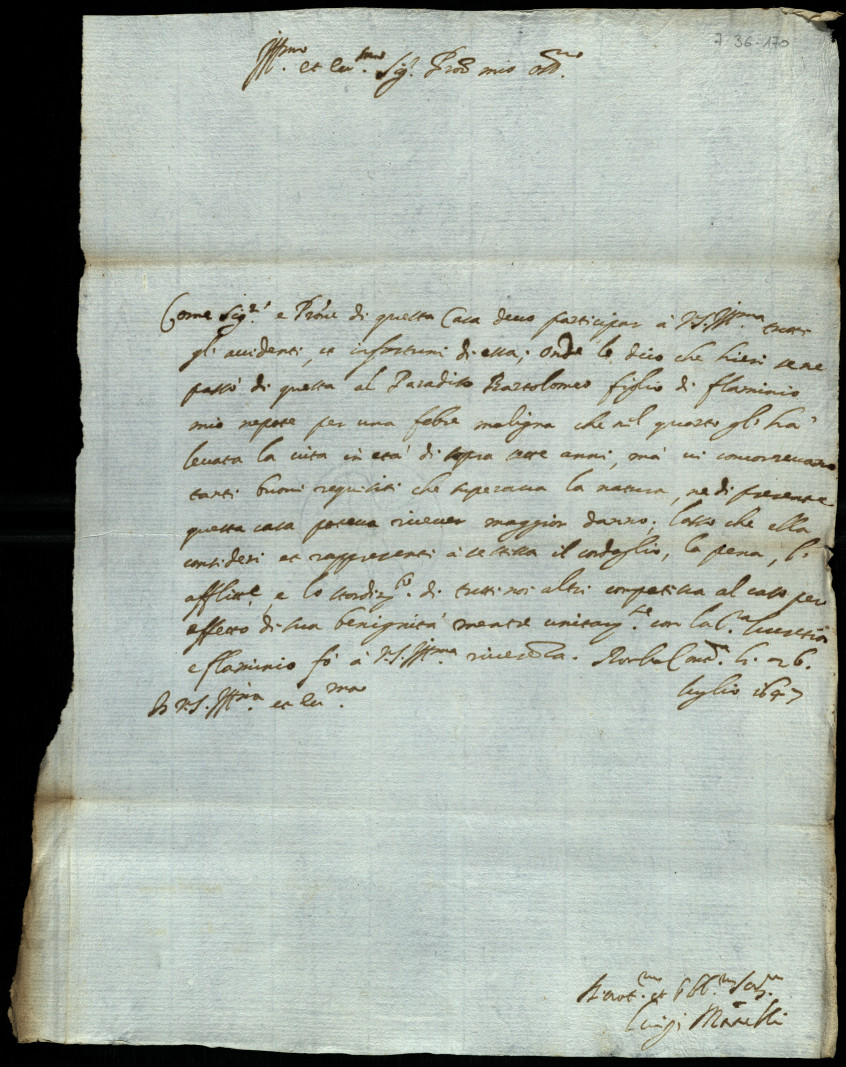 7-36-170
Ill.mo et ecc.mo Sig.r Prone mio oss.mo
Come Sig.re e Prone di questa Casa devo participar à V.S. Ill.ma tutti
gli accidenti, et infortuni di essa; Onde le dico che hieri se ne
passò di questa al Paradiso Bartolomeo figlio di flaminio
mio nepote per una febre maligna che nel quarto gli hà
levata la vita in età di sopra sette anni, mà vi concorrevano
tanti buoni requisiti che superava la natura, ne di presente
questa casa poteva ricever maggior danno. lasso che ella
consideri et rappresenti à se stessa il cordoglio, la pena, l'
afflitt.e, e lo stordim.to di tutti noi altri compatisca al caso per
effetto di sua benignità mentre unitam.te con la S.ra Lucretia
e flaminio fò à V.S. Ill.ma riverenza. 26.
luglio 1647
Di V.S. Ill.ma et ecc.ma
Devot.mo et obl.mo Ser.re
Luigi Maselli